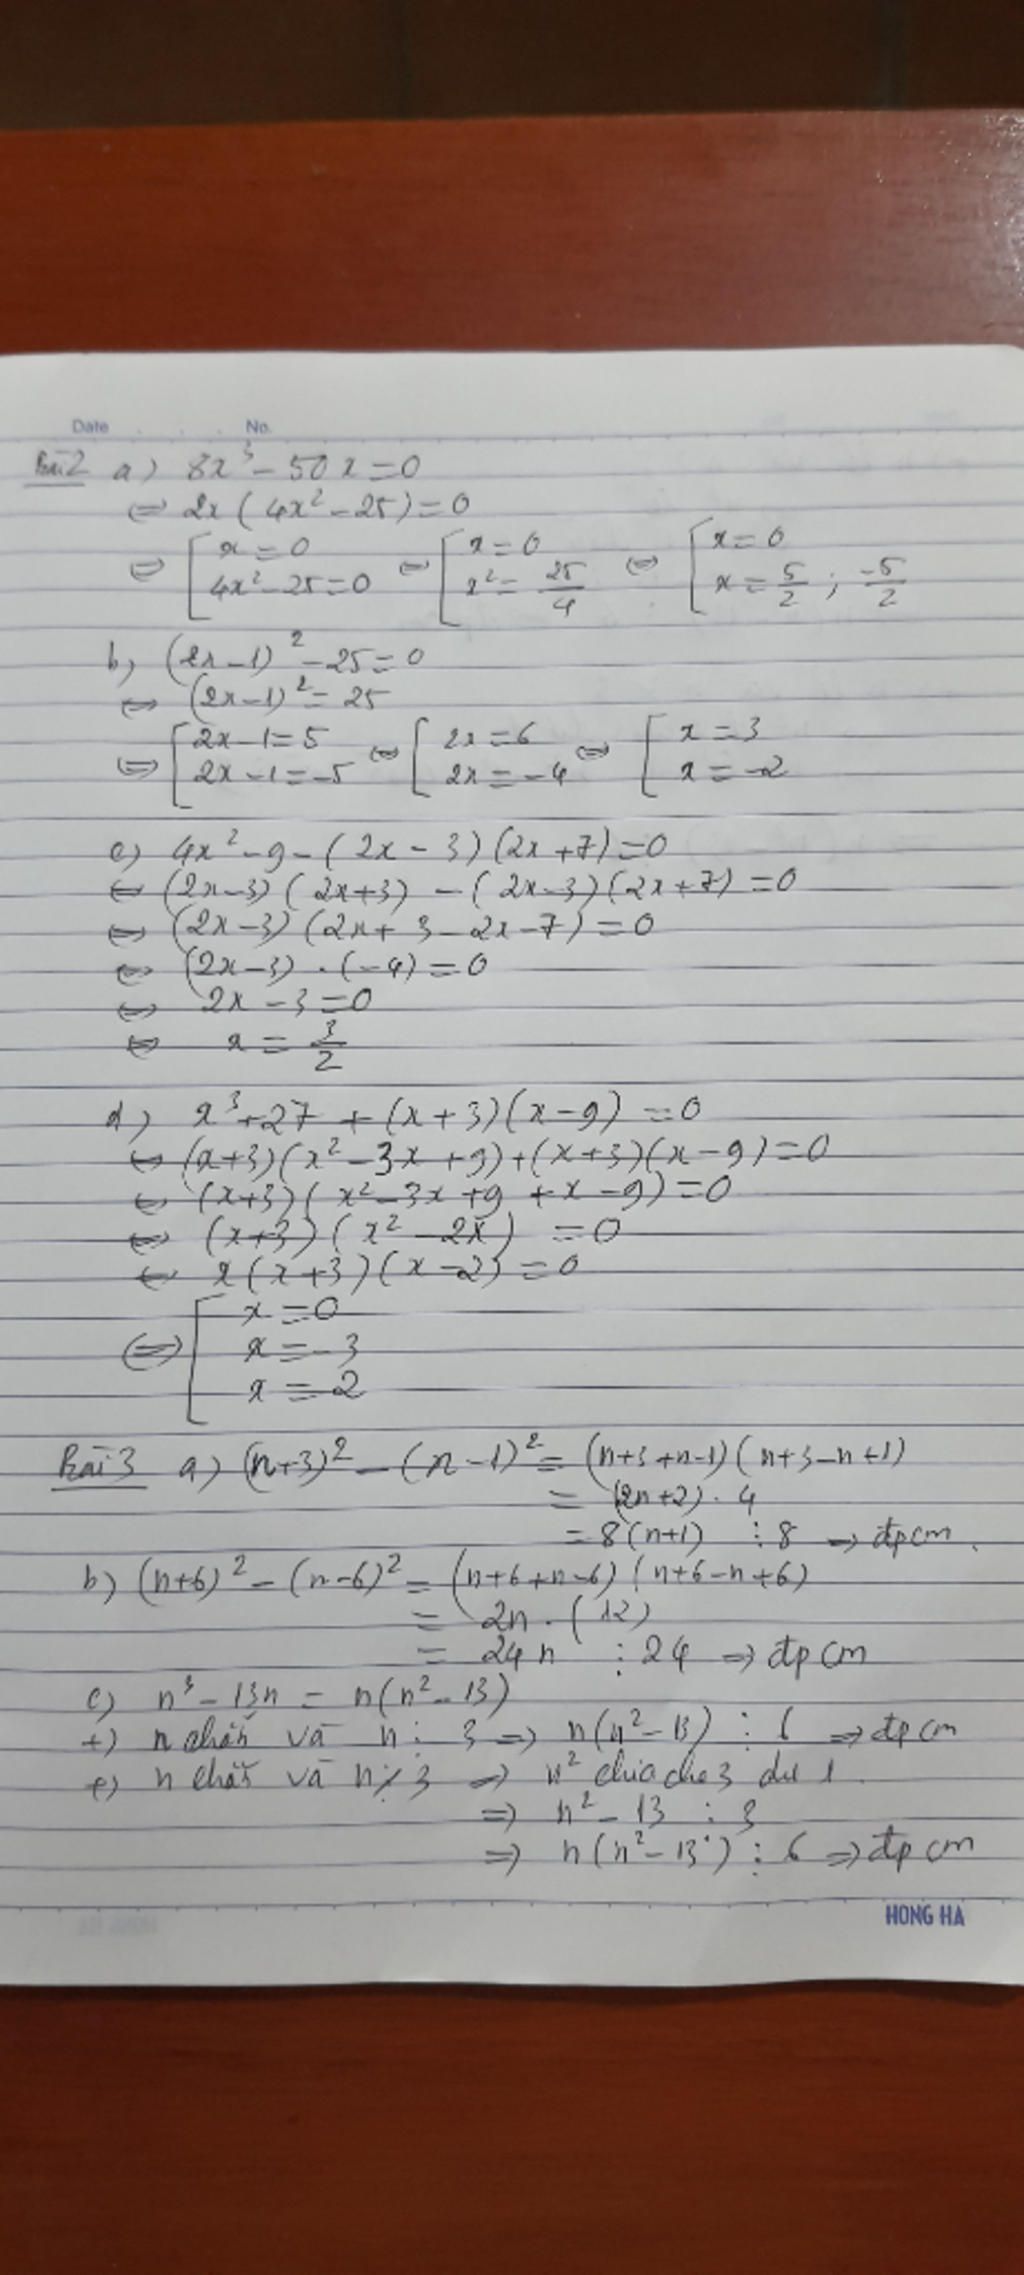 Date . . . No.
Bài 2 a) 8x³ - 50x = 0
⇔ 2x (4x² - 25) = 0
⇔ [ x = 0 ; 4x² - 25 = 0 ⇔ [ x = 0 ; x² = 25/4 ⇔ [ x = 0 ; x = 5/2 ; -5/2
b) (2x - 1)² - 25 = 0
⇔ (2x - 1)² = 25
⇔ [ 2x - 1 = 5 ; 2x - 1 = -5 ⇔ [ 2x = 6 ; 2x = -4 ⇔ [ x = 3 ; x = -2
c) 4x² - 9 - (2x - 3)(2x + 7) = 0
⇔ (2x - 3)(2x + 3) - (2x - 3)(2x + 7) = 0
⇔ (2x - 3)(2x + 3 - 2x - 7) = 0
⇔ (2x - 3) . (-4) = 0
⇔ 2x - 3 = 0
⇔ x = 3/2
d) x³ + 27 + (x + 3)(x - 9) = 0
⇔ (x + 3)(x² - 3x + 9) + (x + 3)(x - 9) = 0
⇔ (x + 3)(x² - 3x + 9 + x - 9) = 0
⇔ (x + 3)(x² - 2x) = 0
⇔ x(x + 3)(x - 2) = 0
⇔ [ x = 0
x = -3
x = 2
Bài 3 a) (n+3)² - (n-1)² = (n+3+n-1)(n+3-n+1)
= (2n+2) . 4
= 8(n+1) ⋮ 8 ⇒ đpcm.
b) (n+6)² - (n-6)² = (n+6+n-6)(n+6-n+6)
= 2n . (12)
= 24n ⋮ 24 ⇒ đpcm
c) n³ - 13n = n(n² - 13)
+) n chẵn và n ⋮ 3 ⇒ n(n² - 13) ⋮ 6 ⇒ đpcm
+) n chẵn và n ⋮̸ 3 ⇒ n² chia cho 3 dư 1
⇒ n² - 13 ⋮ 3
⇒ n(n² - 13) ⋮ 6 ⇒ đpcm
HONG HA